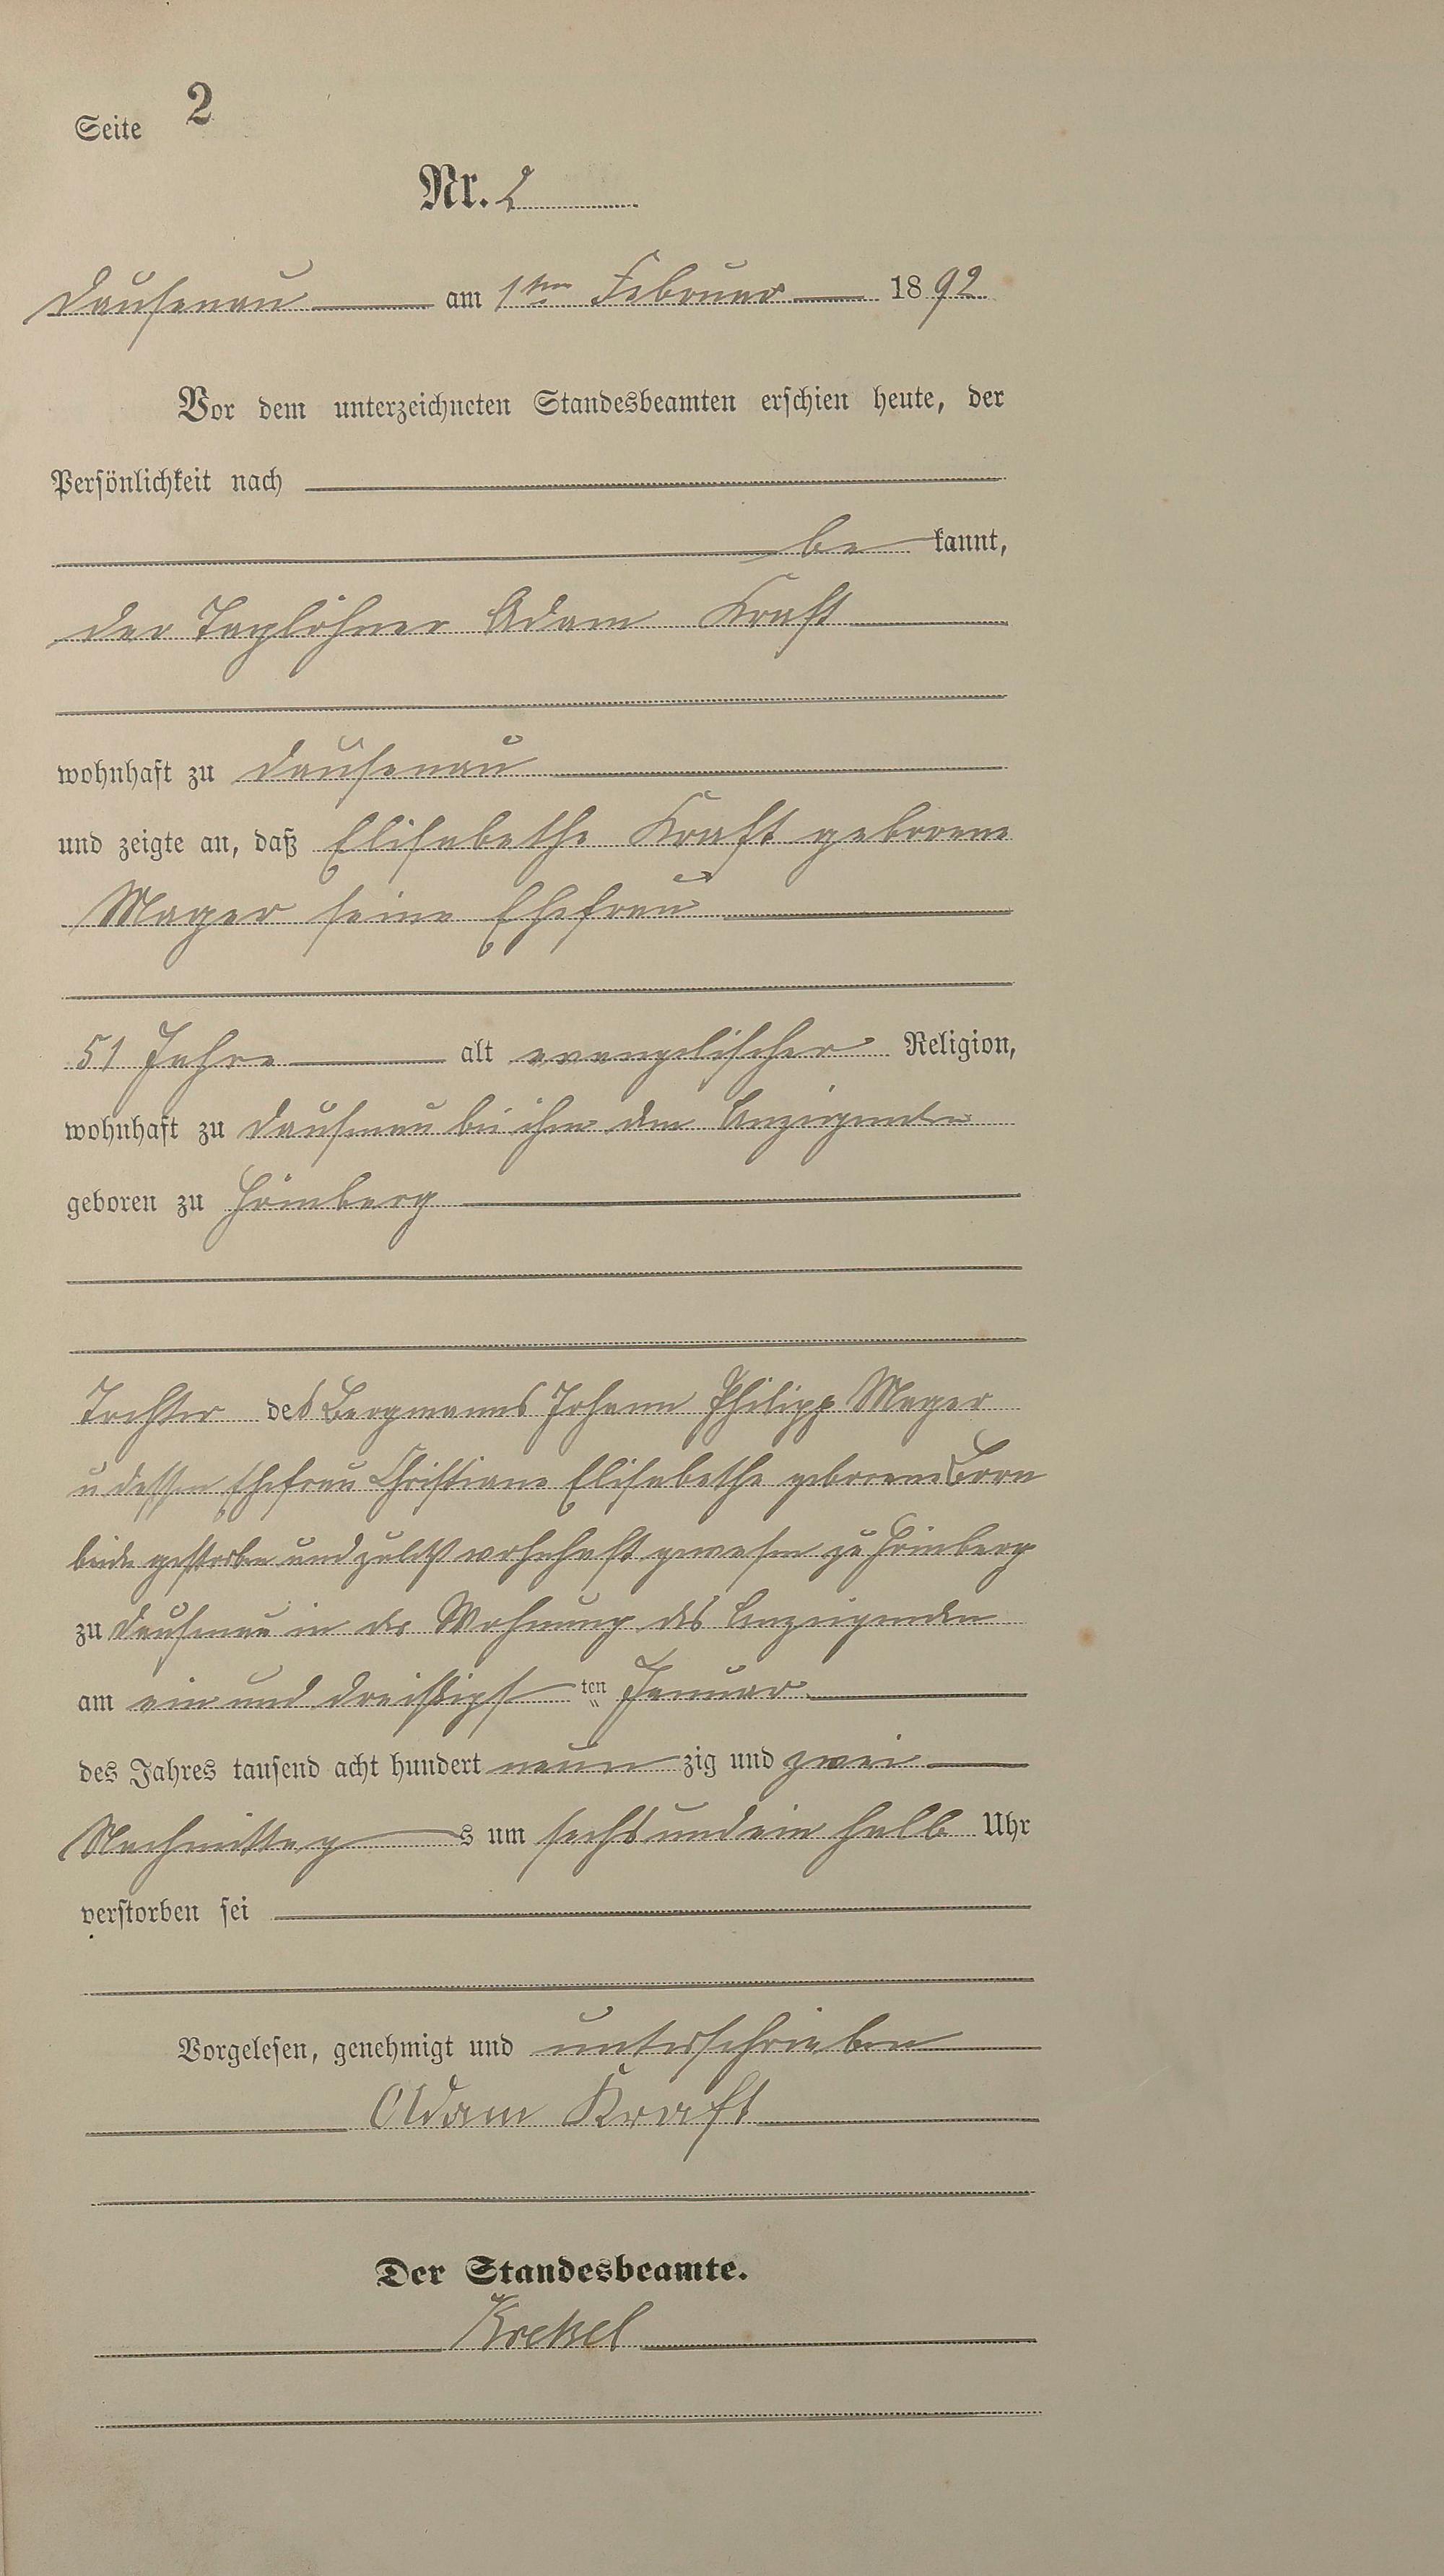 Seite 2
Nr. 2
Dausenau am 1ten Februar 1892
Vor dem unterzeichneten Standesbeamten erschien heute, der
Persönlichkeit nach
be kannt,
der Taglöhner Adam Kraft
wohnhaft zu Dausenau
und zeigte an, daß Elisabethe Kraft geborene
Mager seine Ehefrau
51 Jahre alt evangelischer Religion,
wohnhaft zu Dausenau bei ihm dem Anzeigenden
geboren zu Hömberg
Tochter des Bergmanns Johann Philipp Mager
u dessen Ehefrau Christiane Elisabethe geborene Born
beide gestorben und zuletzt wohnhaft gewesen zu Hömberg
zu Dausenau in der Wohnung des Anzeigenden
am ein und dreißigst ten Januar
des Jahres tausend acht hundert neun zig und zwei
Nachmittag s um sechs und ein halb Uhr
verstorben sei
Vorgelesen, genehmigt und unterschrieben
Adam Kraft
Der Standesbeamte.
Krekel